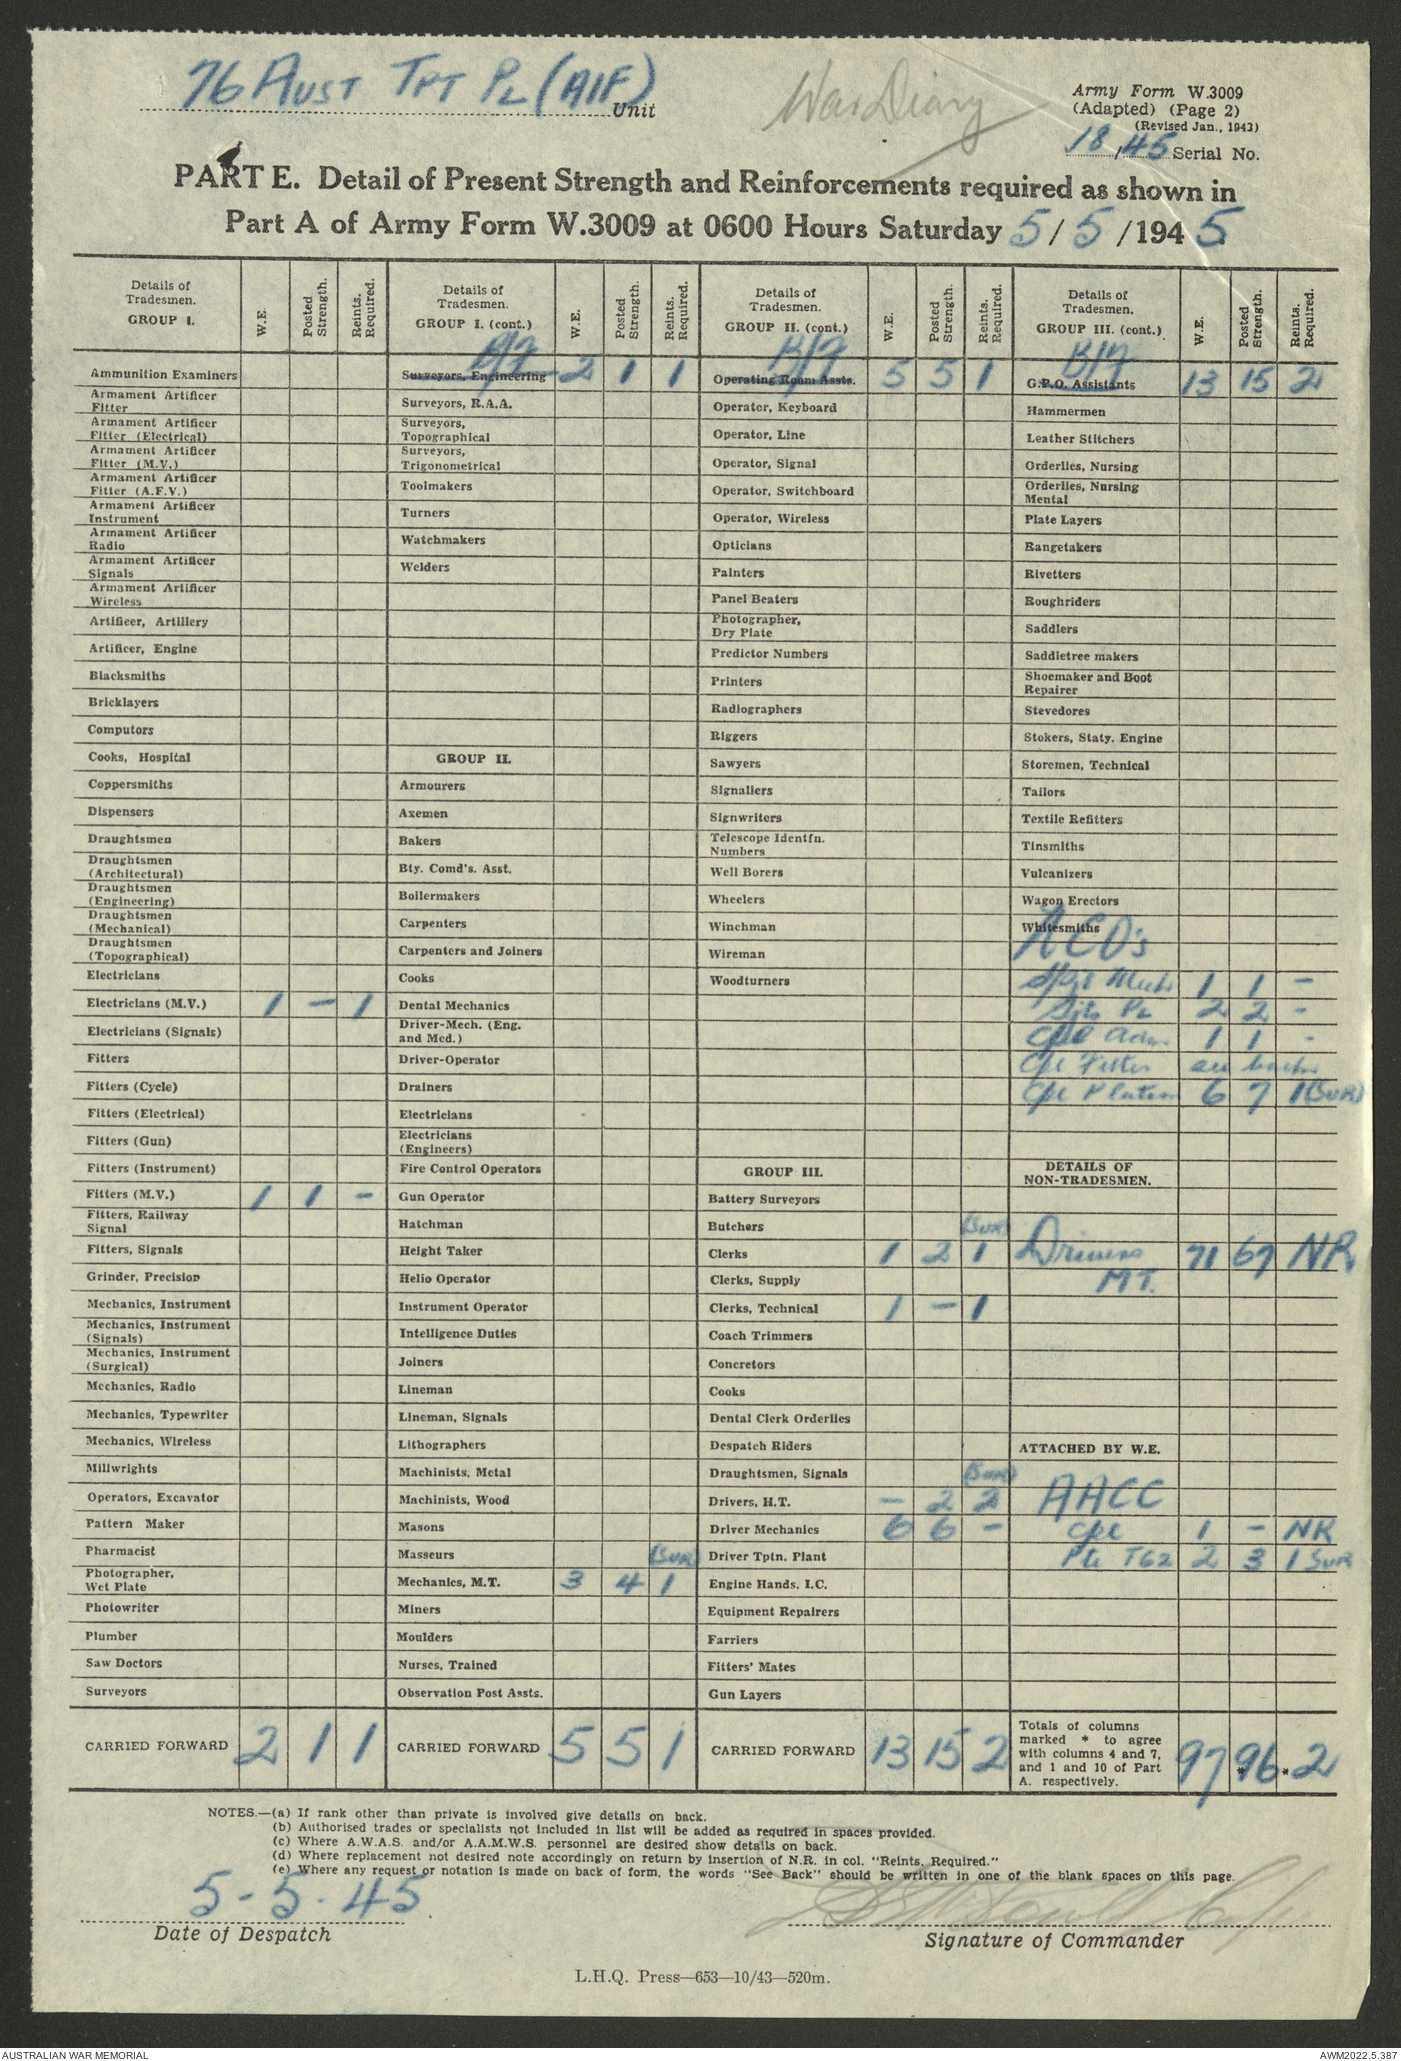 76 AUST TPT PL (AIF)
Unit
War Diary
Army Form W.3009
(Adapted) (Page 2)
(Revised Jan., 1943)
18/45 Serial No.
PART E. Detail of Present Strength and Reinforcements required as shown in
Part A of Army Form W.3009 at 0600 Hours Saturday 5/5/1945
Details of Tradesmen. GROUP I. W.E. Posted Strength. Reints. Required.
Ammunition Examiners
Armament Artificer Fitter
Armament Artificer Fitter (Electrical)
Armament Artificer Fitter (M.V.)
Armament Artificer Fitter (A.F.V.)
Armament Artificer Instrument
Armament Artificer Radio
Armament Artificer Signals
Armament Artificer Wireless
Artificer, Artillery
Artificer, Engine
Blacksmiths
Bricklayers
Computors
Cooks, Hospital
Coppersmiths
Dispensers
Draughtsmen
Draughtsmen (Architectural)
Draughtsmen (Engineering)
Draughtsmen (Mechanical)
Draughtsmen (Topographical)
Electricians
Electricians (M.V.) 1 - 1
Electricians (Signals)
Fitters
Fitters (Cycle)
Fitters (Electrical)
Fitters (Gun)
Fitters (Instrument)
Fitters (M.V.) 1 1 -
Fitters, Railway Signal
Fitters, Signals
Grinder, Precision
Mechanics, Instrument
Mechanics, Instrument (Signals)
Mechanics, Instrument (Surgical)
Mechanics, Radio
Mechanics, Typewriter
Mechanics, Wireless
Millwrights
Operators, Excavator
Pattern Maker
Pharmacist
Photographer, Wet Plate
Photowriter
Plumber
Saw Doctors
Surveyors
CARRIED FORWARD 2 1 1
Details of Tradesmen. GROUP I. (cont.) W.E. Posted Strength. Reints. Required.
B/F
Surveyors, Engineering 2 1 1
Surveyors, R.A.A.
Surveyors, Topographical
Surveyors, Trigonometrical
Toolmakers
Turners
Watchmakers
Welders
GROUP II.
Armourers
Axemen
Bakers
Bty. Comd's. Asst.
Boilermakers
Carpenters
Carpenters and Joiners
Cooks
Dental Mechanics
Driver-Mech. (Eng. and Med.)
Driver-Operator
Drainers
Electricians
Electricians (Engineers)
Fire Control Operators
Gun Operator
Hatchman
Height Taker
Helio Operator
Instrument Operator
Intelligence Duties
Joiners
Lineman
Lineman, Signals
Lithographers
Machinists, Metal
Machinists, Wood
Masons
Masseurs
(SUR)
Mechanics, M.T. 3 4 1
Miners
Moulders
Nurses, Trained
Observation Post Assts.
CARRIED FORWARD 5 5 1
Details of Tradesmen. GROUP II. (cont.) W.E. Posted Strength. Reints. Required.
B/F
Operating Room Assts. 5 5 1
Operator, Keyboard
Operator, Line
Operator, Signal
Operator, Switchboard
Operator, Wireless
Opticians
Painters
Panel Beaters
Photographer, Dry Plate
Predictor Numbers
Printers
Radiographers
Riggers
Sawyers
Signallers
Signwriters
Telescope Identfn. Numbers
Well Borers
Wheelers
Winchman
Wireman
Woodturners
GROUP III.
Battery Surveyors
Butchers
(SUR)
Clerks 1 2 1
Clerks, Supply
Clerks, Technical 1 - 1
Coach Trimmers
Concretors
Cooks
Dental Clerk Orderlies
Despatch Riders
Draughtsmen, Signals
(SUR)
Drivers, H.T. - 2 2
Driver Mechanics 6 6 -
Driver Tptn. Plant
Engine Hands, I.C.
Equipment Repairers
Farriers
Fitters' Mates
Gun Layers
CARRIED FORWARD 13 15 2
Details of Tradesmen. GROUP III. (cont.) W.E. Posted Strength. Reints. Required.
B/F
G.P.O. Assistants 13 15 2
Hammermen
Leather Stitchers
Orderlies, Nursing
Orderlies, Nursing Mental
Plate Layers
Rangetakers
Rivetters
Roughriders
Saddlers
Saddletree makers
Shoemaker and Boot Repairer
Stevedores
Stokers, Staty. Engine
Storemen, Technical
Tailors
Textile Refitters
Tinsmiths
Vulcanizers
Wagon Erectors
Whitesmiths
NCO's
Sjt Mech 1 1 -
Sjts PL 2 2 -
Cpl Adm. 1 1 -
Cpl Fitter see back
Cpl Platoon 6 7 1(SUR)
DETAILS OF NON-TRADESMEN.
Drivers 71 67 NR
MT.
ATTACHED BY W.E.
AACC
Cpl 1 - NR
Pte T62 2 3 1 SUR
Totals of columns marked * to agree with columns 4 and 7, and 1 and 10 of Part A. respectively. 97 *96 *2
NOTES.—(a) If rank other than private is involved give details on back.
(b) Authorised trades or specialists not included in list will be added as required in spaces provided.
(c) Where A.W.A.S. and/or A.A.M.W.S. personnel are desired show details on back.
(d) Where replacement not desired note accordingly on return by insertion of N.R. in col. "Reints. Required."
(e) Where any request or notation is made on back of form, the words "See Back" should be written in one of the blank spaces on this page.
5-5-45
Date of Despatch
Signature of Commander
L.H.Q. Press—653—10/43—520m.
AUSTRALIAN WAR MEMORIAL
AWM2022.5.387